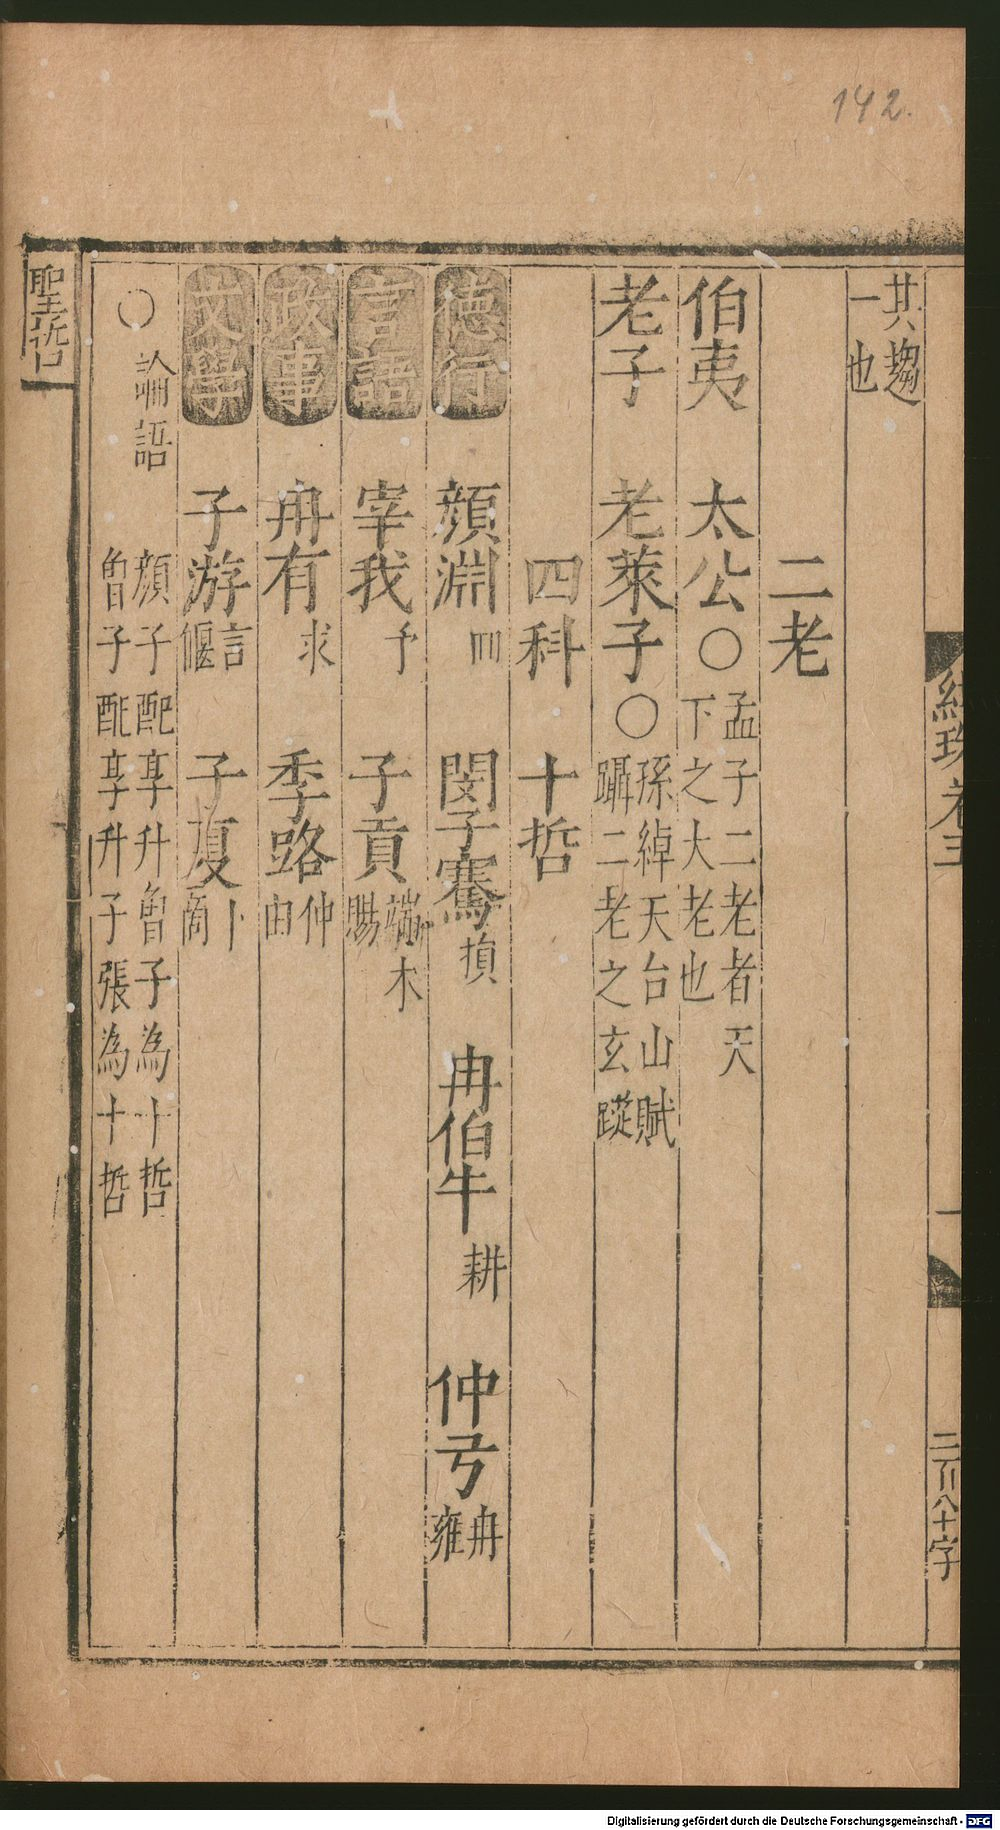 142.
共趨
一也
二老
伯夷 太公○孟子二老者天
下之大老也
老子 老萊子○孫綽天台山賦
躡二老之玄蹤
四科 十哲
德行 顔淵回 閔子騫損 冉伯牛耕 仲弓冉
雍
言語 宰我予 子貢端木
賜
政事 冉有求 季路仲
由
文學 子游言
偃 子夏卜
商
○論語 顔子配享升曾子為十哲
曾子配享升子張為十哲
聖哲
卷三
一
Digitalisierung gefördert durch die Deutsche Forschungsgemeinschaft - DFG